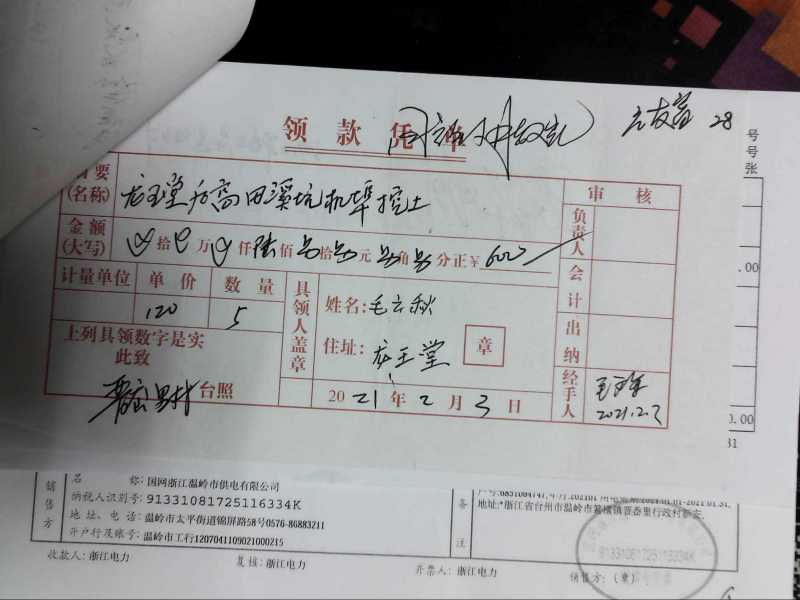 领款凭单
28
号
号
张
摘要
(名称)
龙王堂后高田溪坑机埠挖土
审核
金额
(大写)
拾 万 仟陆佰 拾 元 角 分正￥600
负责人
计量单位 单价 数量
120 5
具领人盖章
姓名:毛云秋
住址:龙王堂
章
会计
出纳
.00
上列具领数字是实
此致
台照
2021年2月3日
经手人
2021.2.3
0.00
31
销售方
名 称:国网浙江温岭市供电有限公司
纳税人识别号:91331081725116334K
地址、电话:温岭市太平街道锦屏路58号0576-86883211
开户行及账号:温岭市工行1207041109021000215
备注
地址:*浙江省台州市温岭市箬横镇晋岙里行政村
91331081725116334K
收款人:浙江电力
复核:浙江电力
开票人:浙江电力
销售方:(章)